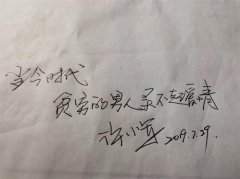 当今时代
贫穷的男人承不起谓情
许小年 2019.7.29.